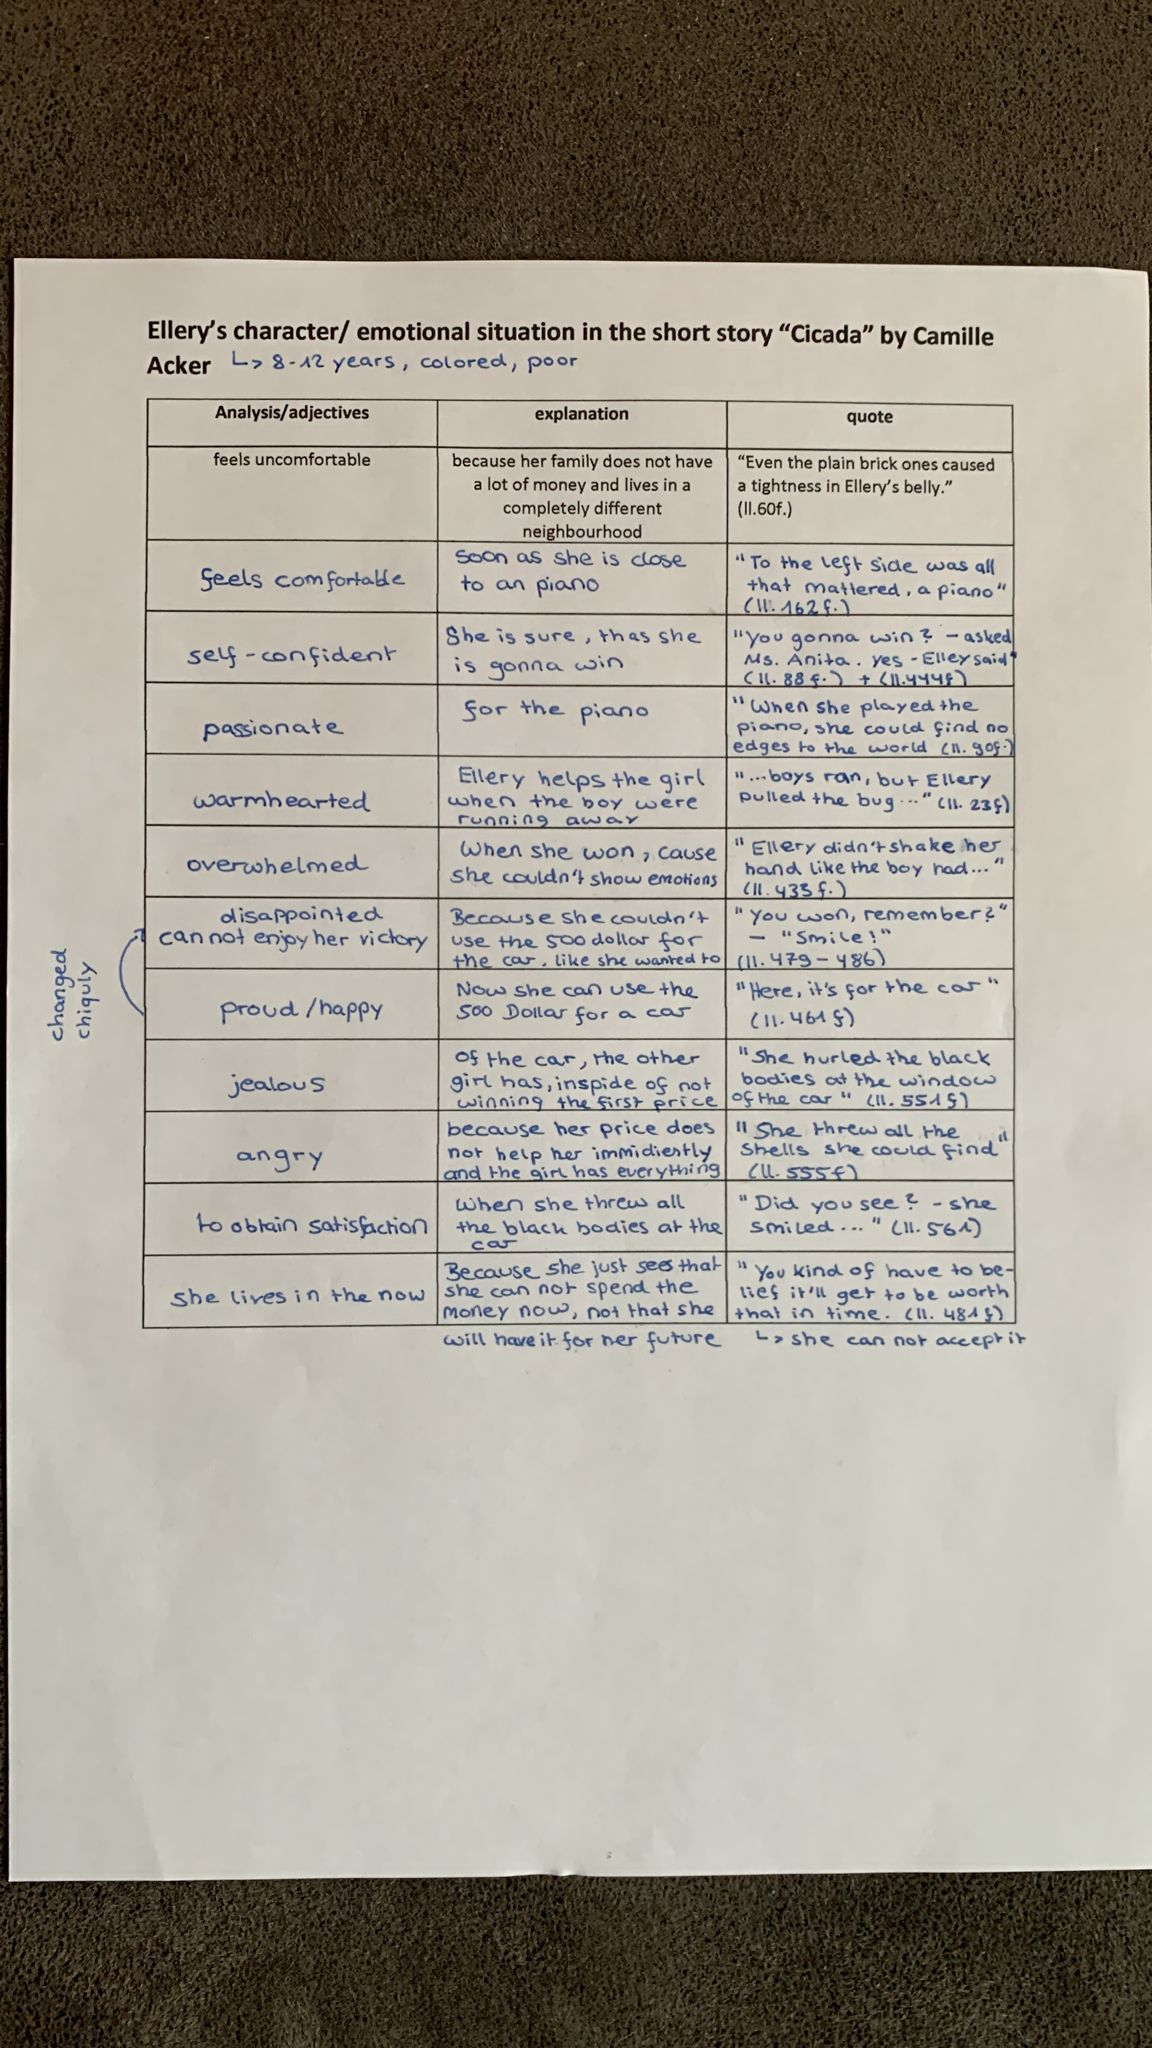 Ellery's character/ emotional situation in the short story "Cicada" by Camille
Acker ↳ 8-12 years, colored, poor
Analysis/adjectives
explanation
quote
feels uncomfortable
because her family does not have
a lot of money and lives in a
completely different
neighbourhood
"Even the plain brick ones caused
a tightness in Ellery's belly."
(ll.60f.)
feels comfortable
soon as she is close
to an piano
"To the left side was all
that mattered, a piano"
(ll. 162f.)
self-confident
She is sure, thas she
is gonna win
"You gonna win? - asked
Ms. Anita. yes - Elley said"
(ll. 88f.) + (ll.444f)
passionate
for the piano
"When she played the
piano, she could find no
edges to the world (ll. 90f.)
warmhearted
Ellery helps the girl
when the boy were
running away
"...boys ran, but Ellery
pulled the bug..." (ll. 23f)
overwhelmed
When she won, cause
she couldn't show emotions
"Ellery didn't shake her
hand like the boy had..."
(ll. 435f.)
disappointed
cannot enjoy her victory
Because she couldn't
use the 500 dollar for
the car, like she wanted to
"You won, remember?"
- "Smile!"
(ll. 479-486)
changed
chiquly
proud/happy
Now she can use the
500 Dollar for a car
"Here, it's for the car"
(ll. 461f)
jealous
Of the car, the other
girl has, inspide of not
winning the first price
"She hurled the black
bodies at the window
of the car" (ll. 551f)
angry
because her price does
not help her immidiently
and the girl has everything
"She threw all the
shells she could find"
(ll. 555f)
to obtain satisfaction
When she threw all
the black bodies at the
car
"Did you see? - she
smiled..." (ll. 561)
she lives in the now
Because she just sees that
she can not spend the
money now, not that she
will have it for her future
"You kind of have to be-
lief it'll get to be worth
that in time. (ll. 481f)
↳ she can not accept it